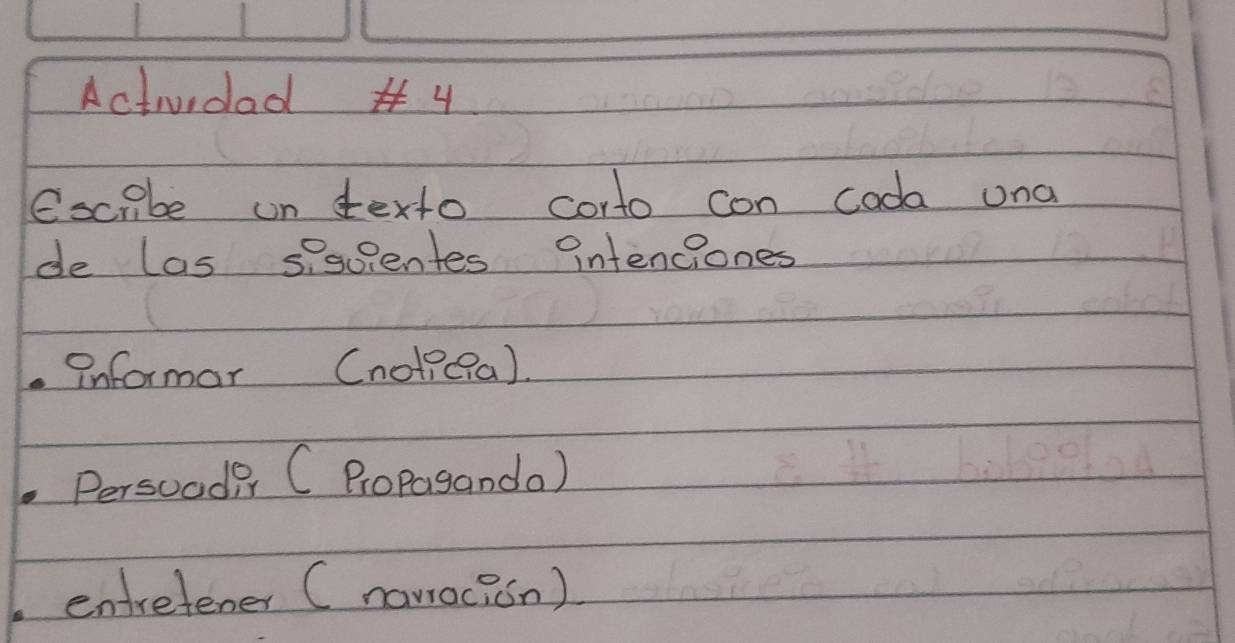 Actividad # 4.
Escribe un texto corto con cada una
de las siguientes intenciones
• informar (noticia).
• Persuadir (Propaganda)
• entretener (narración).